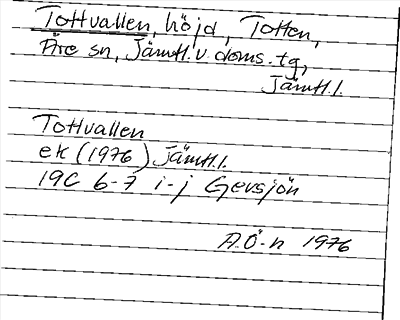 Tottvallen, höjd, Totten,
Åre sn, Jämtl. v. doms. tg,
Jämtl. l.
Tottvallen
ek (1976) Jämtl. l.
19C 6-7 i-j Gevsjön
A.Ö-n 1976